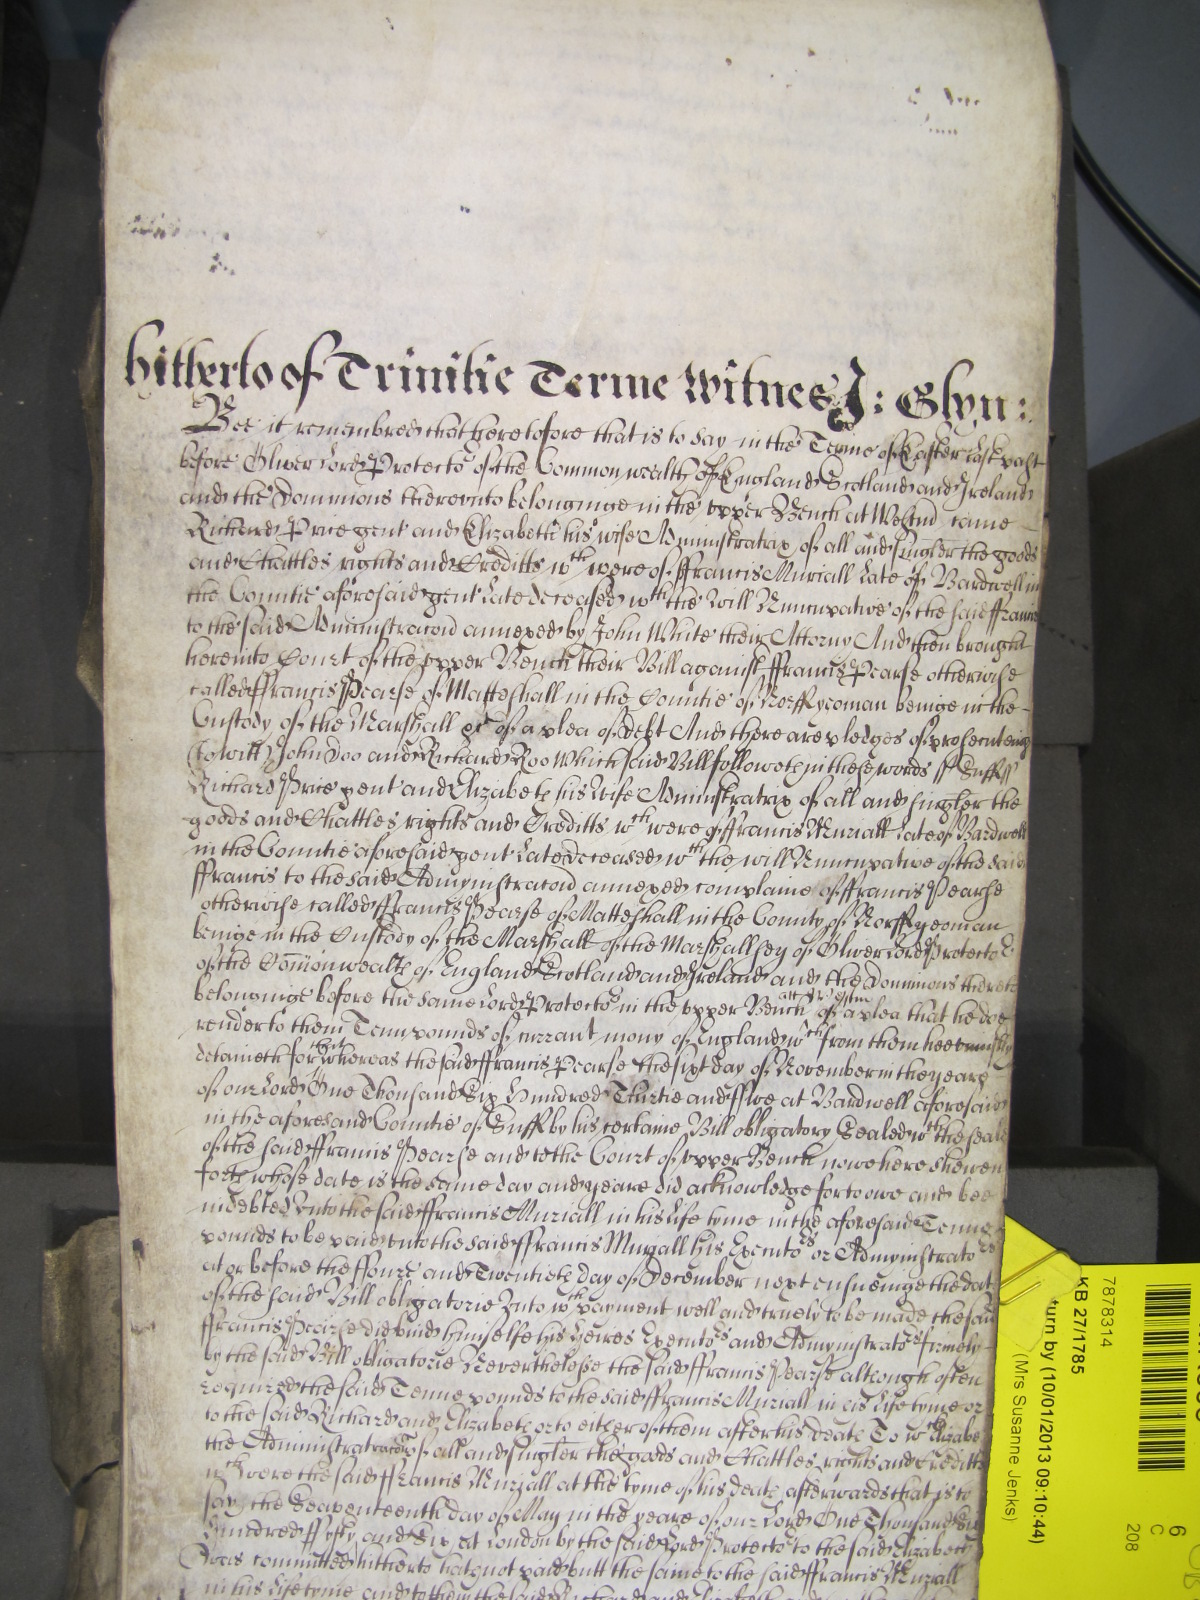 hitherto of Trinitie Terme Witnes J: Glyn:
Bee it remembred that heretofore that is to say in the Terme of Easter last past
before Oliver Lord Protector of the Common wealth of England Scotland and Ireland
and the Dominions therevnto belonginge in the vpper Bench at Westm̄ came
Richard Price gent and Elizabeth his wife Administratrix of all and singler the goods
and Chattles rights and Creditts wch were of ffrancis Muriall Late of Bardwell in
the Countie aforesaid gent Late deceased wth the Will Nuncupative of the said ffrancis
to the said annexed by John White their Attorny And then brought
here into Court of the vpper Bench their Bill against ffrancis Pearse otherwise
called ffrancis Pearse of Matteshall in the Countie of Norff yeoman beinge in the
Custody of the Marshall &c of a plea of debt And there are pledges of prosecuteing
(to witt) John Doo and Richard Roo Which said Bill followeth in these words ss Suff ss
Richard Price gent and Elizabeth his Wife Administratrix of all and singler the
goods and Chattles rights and Creditts wch were of ffrancis Muriall Late of Bardwell
in the Countie aforesaid gent Late deceased wth the will Nuncupative of the said
ffrancis to the said annexed complaine of ffrancis Pearse
otherwise called ffrancis Pearse of Matteshall in the County of Norff yeoman
beinge in the Custody of the Marshall of the Marshallsey of Oliver Lord Protector
of the Com̄onwealth of England Scotland and Ireland and the Dominions thereto
belonginge before the same Lord Protector in the vpper Bench att Westm of a plea that he doe
render to them Tenn pounds of currant mony of England wch from them hee vniustly
detaineth for that whereas the said ffrancis Pearse the sixt day of November in the yeare
of our Lord One Thousand Six Hundred Thirtie and ffive at Bardwell aforesaid
in the aforesaid Countie of Suff by his certaine Bill obligatory Sealed wth the seale
of the said ffrancis Pearse and to the Court of vpper Bench nowe here shewen
forth whose date is the same day and yeare did acknowledge for to owe and bee
indebted vnto the said ffrancis Muriall in his life tyme in the aforesaid Tenne
pounds to be paid vnto the said ffrancis Muriall his Executors or Administrators
at or before the ffoure and Twentieth day of December next ensueinge the date
of the said Bill obligatorie vnto wch payment well and truely to be made the said
ffrancis Pearse did bind himselfe his heires Executors and Administrators firmely
by the said Bill obligatorie Neverthelesse the said ffrancis Pearse although often
required the said Tenne pounds to the said ffrancis Muriall in his life tyme or
to the said Richard and Elizabeth or to either of them after his death To wch Elizabeth
the Administration of all and singler the goods and Chattles rights and Creditts
wch were the said ffrancis Muriall at the tyme of his death afterwards that is to
say the Seaventeenth day of May in the yeare of our Lord One Thousand Six
hundred ffyfty and Six at London by the said Lord Protector to the said Elizabeth
was committed hitherto hath not paid butt the same to the said ffrancis Muriall
in his life tyme and to them the said Richard and Elizabeth
7878314
KB 27/1785
turn by (10/01/2013 09:10:44)
(Mrs Susanne Jenks)
6
C
208